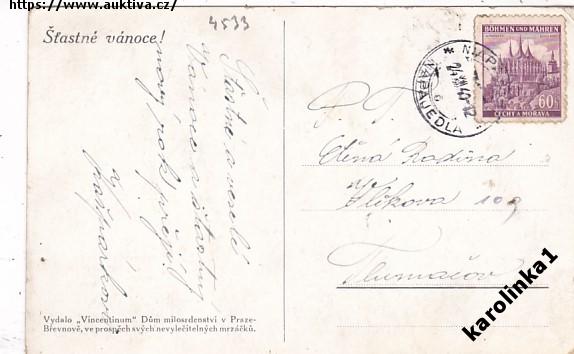 https://www.auktiva.cz/
4533
Šťastné vánoce!
BÖHMEN UND MÄHREN
60
ČECHY A MORAVA
NAPAJEDLA
Šťastné a veselé
Vánoce a šťastný
nový rok přejí
Kašpárkovi
P. T.
Ctěná Rodina
Vlčkova 109
Tlumačov
Vydalo „Vincentinum" Dům milosrdenství v Praze-
Břevnově, ve prospěch svých nevyléčitelných mrzáčků.
karolinka1